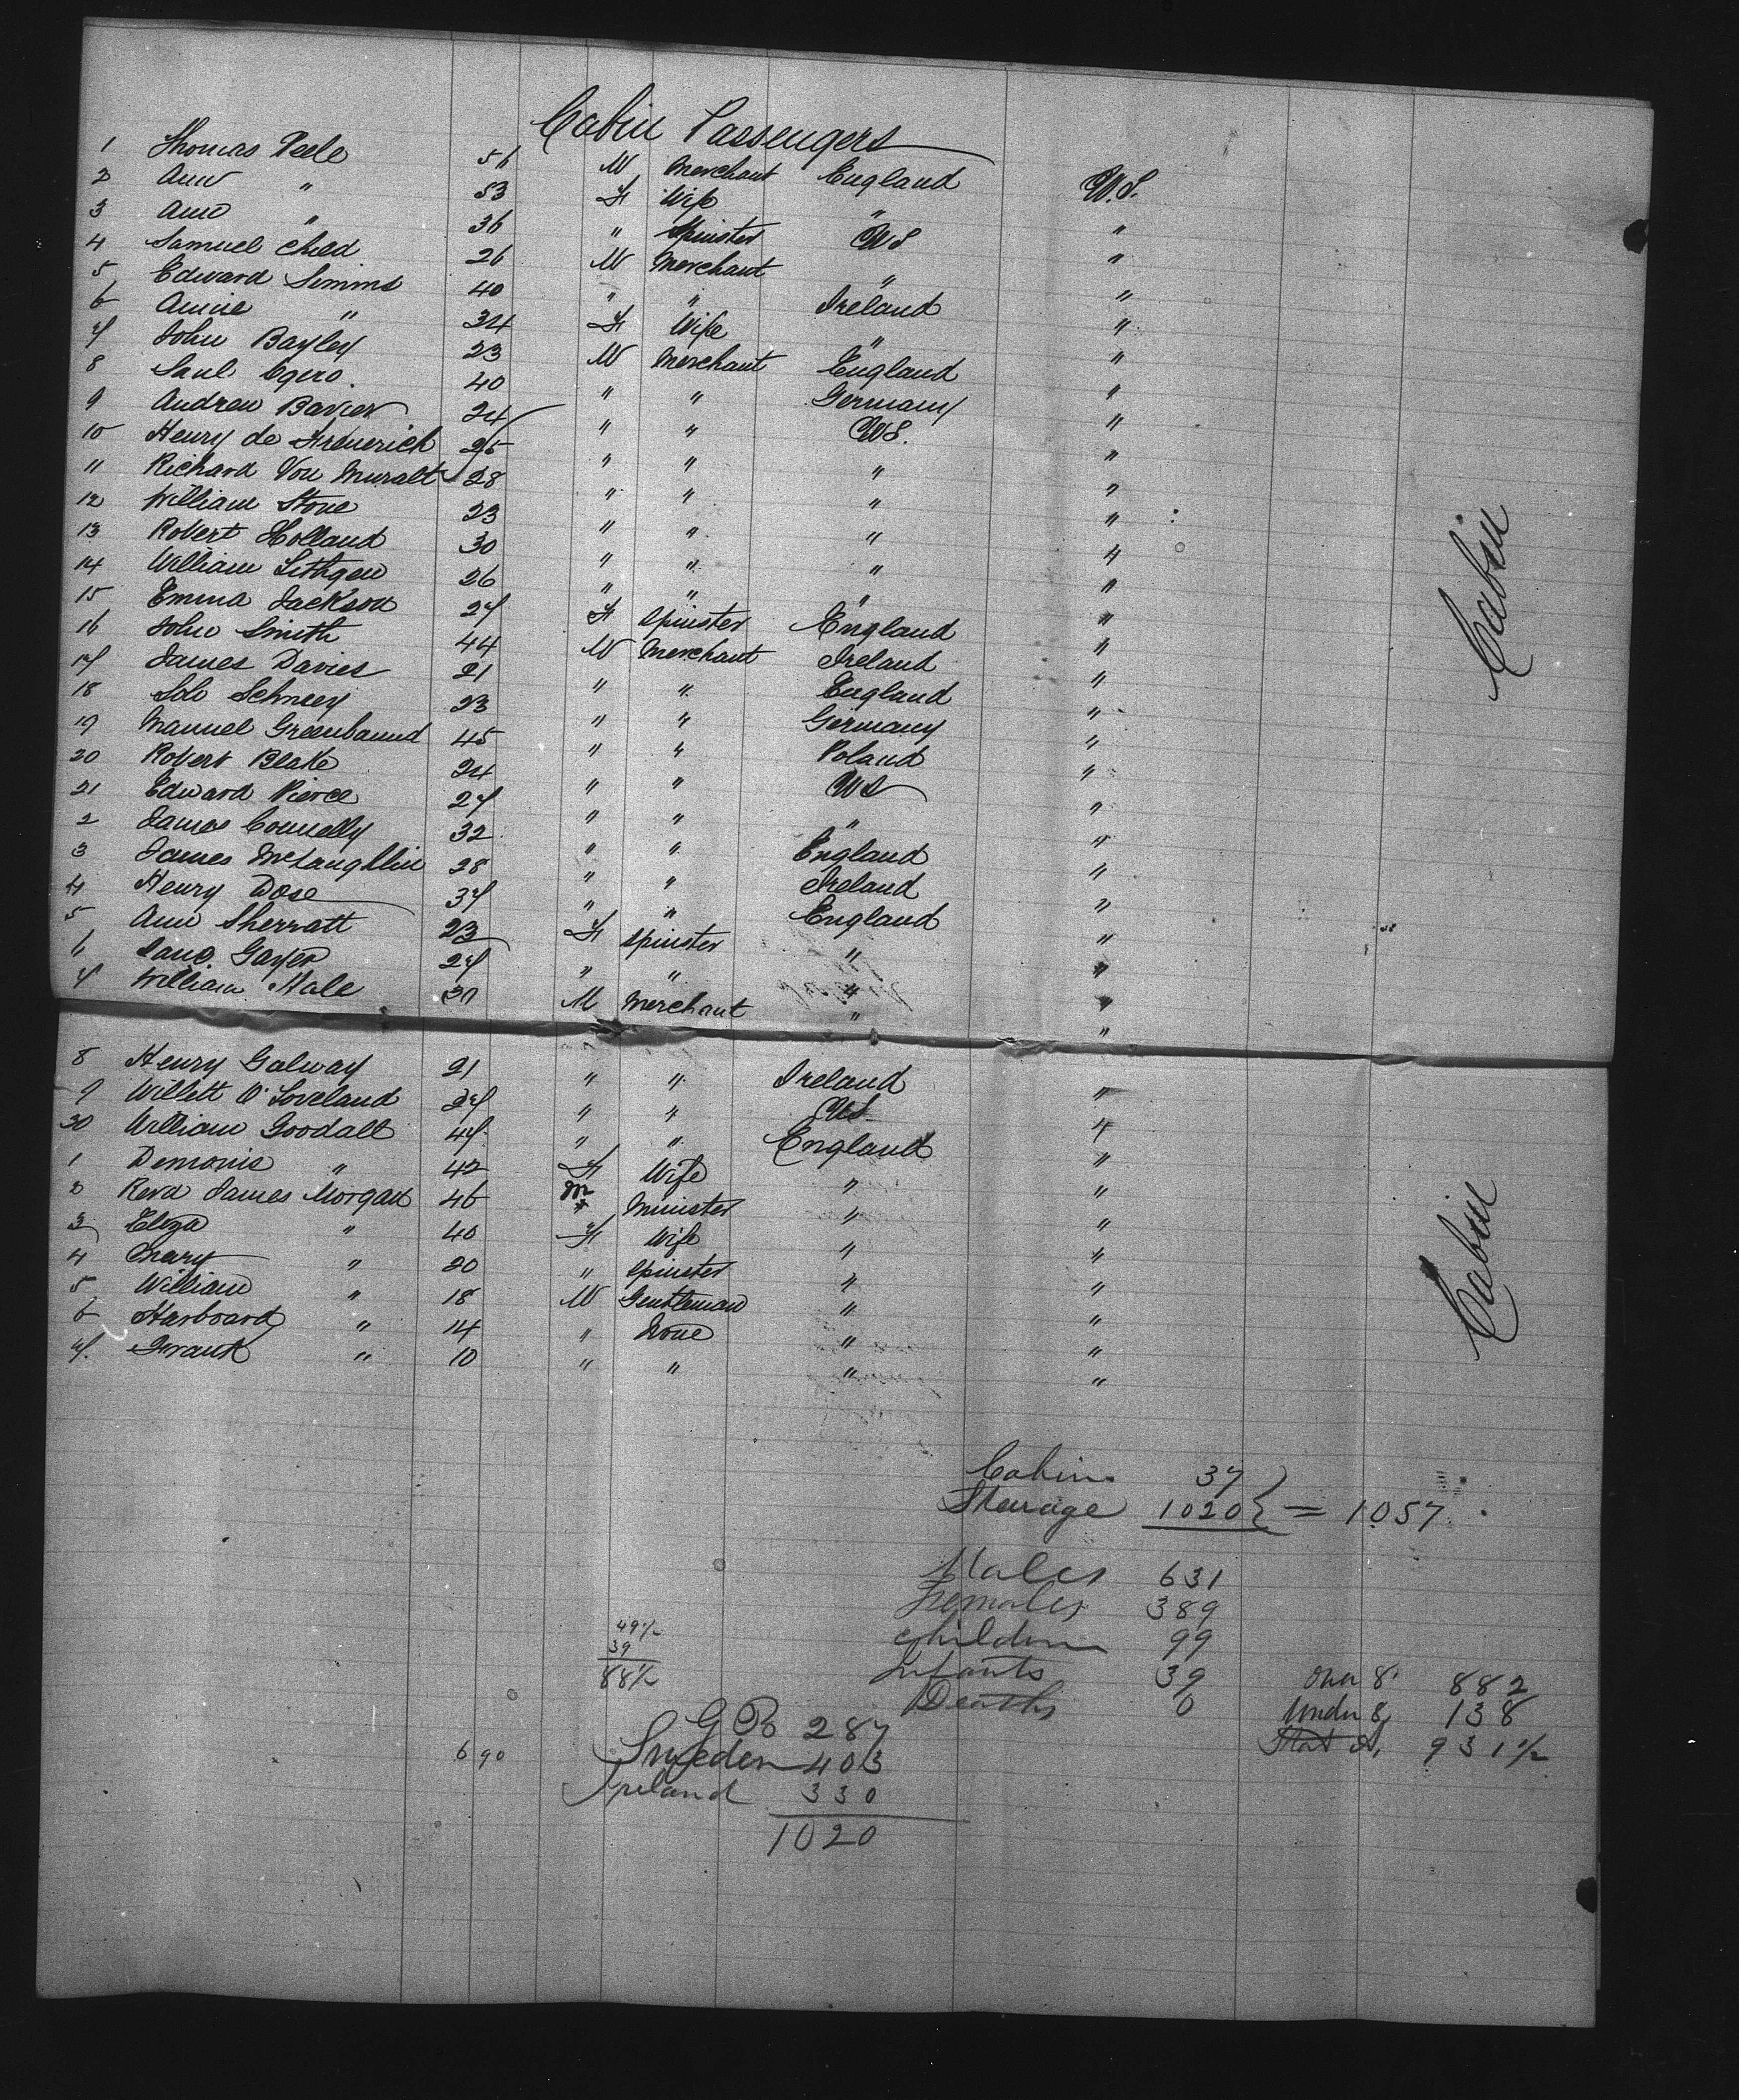 Cabin Passengers
1 Thomas Peele 56 M Merchant England U.S.
2 Ann " 53 F Wife " "
3 Ann " 36 " Spinster US "
4 Samuel Child 26 M Merchant " "
5 Edward Simms 40 " " Ireland "
6 Annie " 34 F Wife " "
7 John Bayley 23 M Merchant England "
8 Saul 40 " " Germany "
9 Andrew 24 " " US. "
10 Henry de 25 " " " "
11 Richard Von Muralt 28 " " " "
12 William Stone 23 " " " "
13 Robert Holland 30 " " " "
14 William Lithgow 26 " " " "
15 Emma Jackson 27 F Spinster England "
16 John Smith 44 M Merchant Ireland "
17 James Davies 21 " " England "
18 Schneey 23 " " Germany "
19 Manuel 45 " " Poland "
20 Robert Blake 24 " " US "
21 Edward Pierce 27 " " " "
2 James Connelly 32 " " England "
3 James McLaughlin 28 " " Ireland "
4 Henry Dose 37 " " England "
5 Ann Sherratt 23 F Spinster " "
6 Jane Gayer 27 " " " "
7 William Hale 30 M Merchant " "
8 Henry Galway 21 " " Ireland "
9 Willett O'Loveland 27 " " US "
30 William Goodall 47 " " England "
1 " 42 F Wife " "
2 Revd James Morgan 46 M Minister " "
3 Eliza " 40 F Wife " "
4 Mary " 20 " Spinster " "
5 William " 18 M Gentleman " "
6 Harboard " 14 " None " "
7. Frank " 10 " " " "
Cabin
Cabin
Cabin 37
Steerage 1020 } = 1057
Males 631
Females 389
Children 99
Infants 39
Deaths 0
49½
39
88½
Over 8 882
Under 8 138
Stat A, 931½
G B 287
690 Sweden 403
Ireland 330
1020